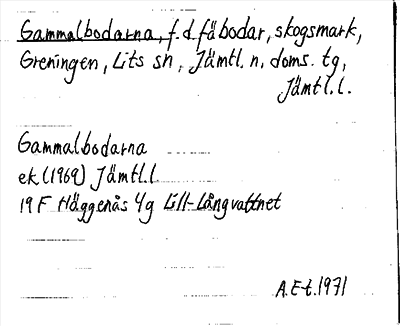 Gammalbodarna, f.d. fäbodar, skogsmark,
Greningen, Lits sn, Jämtl. n. doms. tg,
Jämtl. l.
Gammalbodarna
ek (1969) Jämtl. l
19 F Häggenås 4g Lill-Långvattnet
A.E-t. 1971